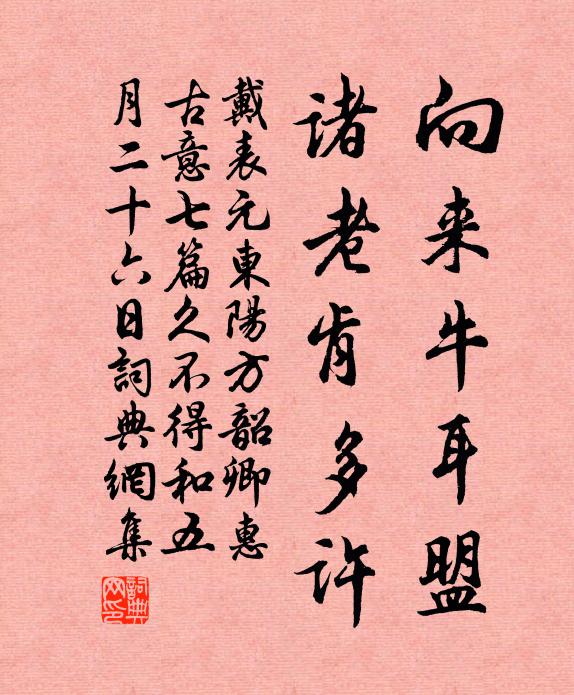 向来牛耳盟
诸老肯多许
戴表元東陽方韶卿惠
古意七篇久不得和五
月二十六日詞典網集
詞典網印